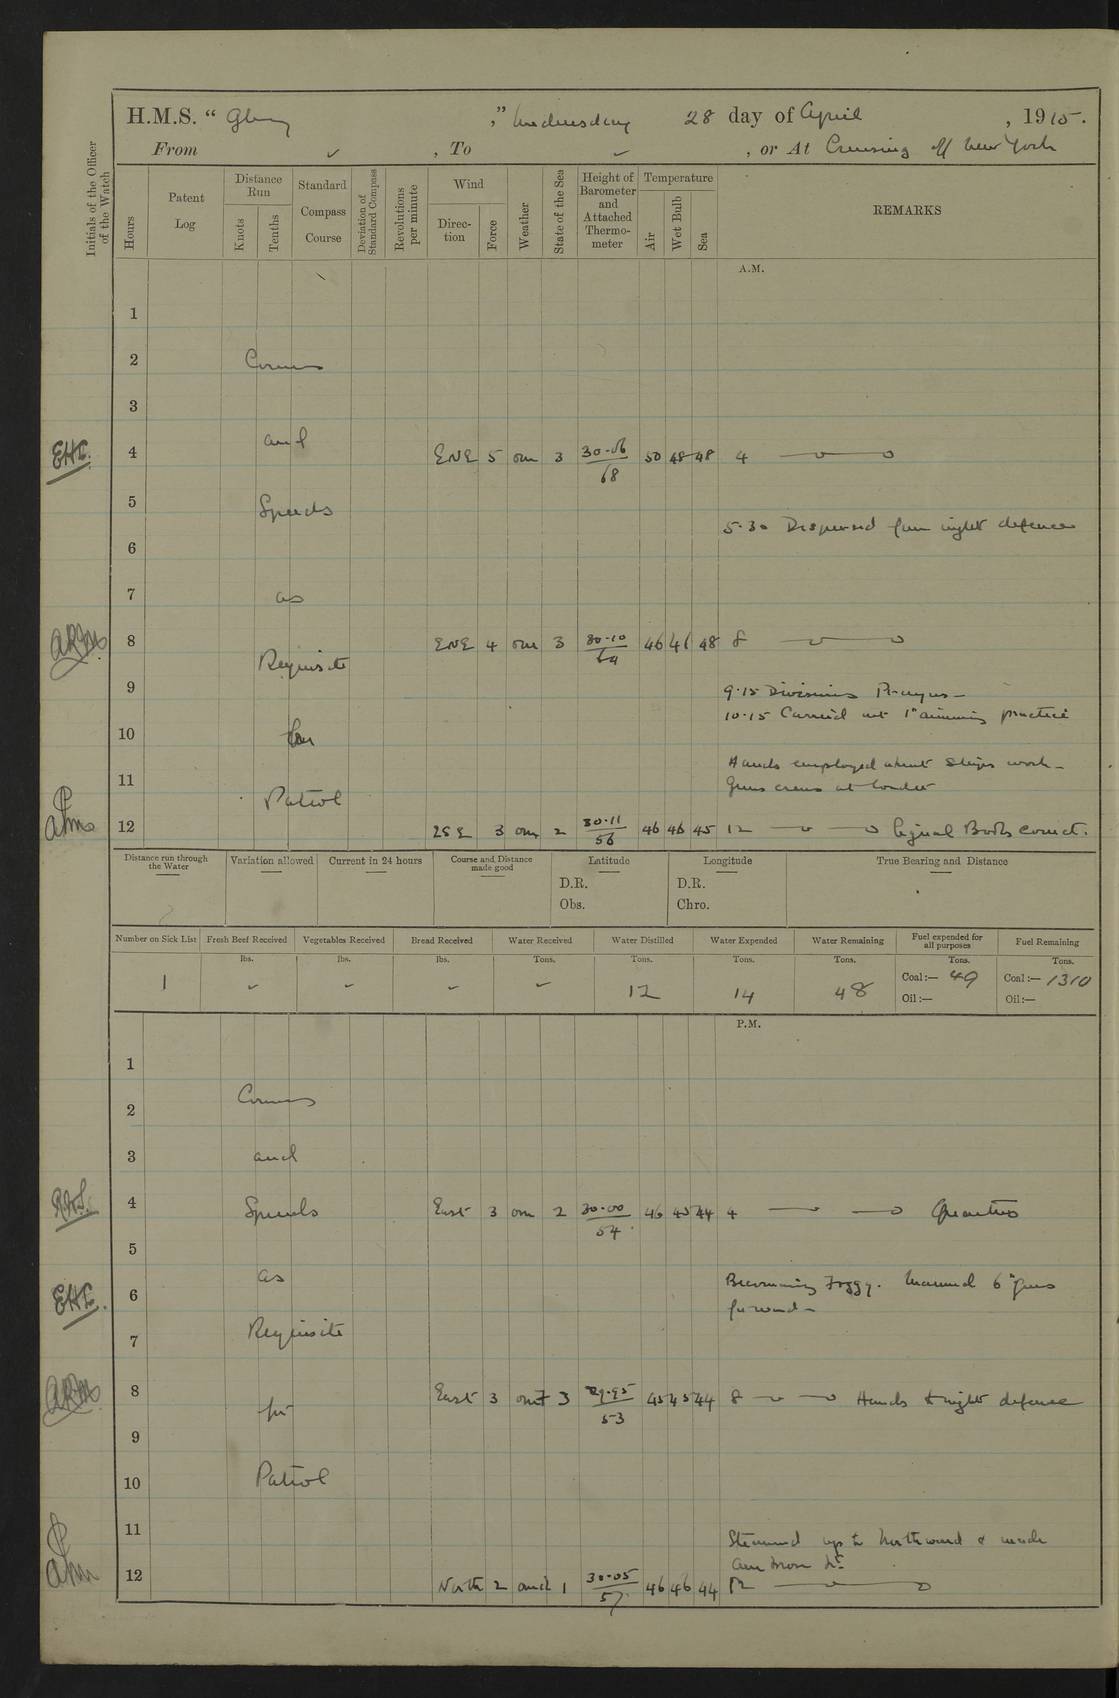 H.M.S. “ Glory ,” Wednesday 28 day of April , 1915.
From ✓ , To ✓ , or At Cruising off New York
Initials of the Officer of the Watch
Hours
Patent Log
Distance Run
Knots
Tenths
Standard Compass Course
Deviation of Standard Compass
Revolutions per minute
Wind
Direc-tion
Force
Weather
State of the Sea
Height of Barometer and Attached Thermo-meter
Temperature
Air
Wet Bulb
Sea
REMARKS
A.M.
1
2 Courses
3
and
EHL. 4 ENE 5 om 3 30.06 50 48 48 4
68
5 Speeds
5.30 Dispersed from night defence
6
7 as
8 ENE 4 om 3 30.10 46 46 48 8
64
Requisite
9 9.15 Divisions Prayers
10.15 Carried out 1" aiming practice
10 for
Hands employed about Ships work
11 Guns crews at loader
Patrol
12 3 om 2 30.11 46 46 45 12 Signal Books correct.
56
Distance run through the Water
Variation allowed
Current in 24 hours
Course and Distance made good
Latitude
D.R.
Obs.
Longitude
D.R.
Chro.
True Bearing and Distance
Number on Sick List
Fresh Beef Received
Vegetables Received
Bread Received
Water Received
Water Distilled
Water Expended
Water Remaining
Fuel expended for all purposes
Fuel Remaining
lbs. lbs. lbs. Tons. Tons. Tons. Tons. Tons. Tons.
1 ✓ ✓ ✓ ✓ 12 14 48 Coal:— 49 Coal:— 1310
Oil:— Oil:—
P.M.
1
Courses
2
3 and
4 Speeds East 3 om 2 30.00 46 45 44 4 Quarters
54
5
as
Becoming Foggy. Manned 6" guns
EHL. 6 forward
Requisite
7
8 East 3 omf 3 29.95 45 45 44 8 Hands to night defence
53
for
9
10 Patrol
11
Steamed up to Northward & made
Ambrose Lt.
12 North 2 1 30.05 46 46 44 12
57